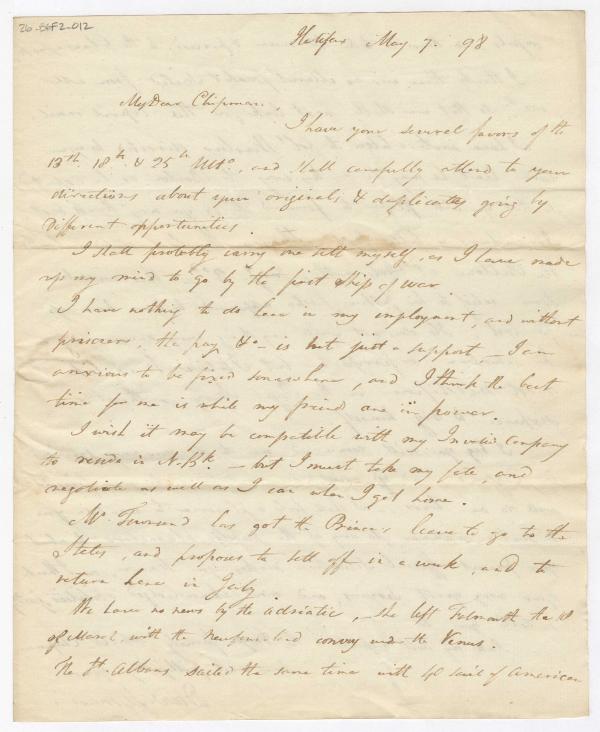 26-SGF2-012
Halifax May 7. 98
My Dear Chipman,
I have your several favors of the
13th 18th & 25th Ulto, and shall carefully attend to your
directions about your originals & duplicates going by
different opportunities.
I shall probably carry one sett myself, as I have made
up my mind to go by the first Ship of war.
I have nothing to do here in my employment, and without
prisoners, the pay &c - is but just a support, - I am
anxious to be fixed somewhere, and I think the best
time for me is while my friend are in power.
I wish it may be compatible with my Company
to reside in N. Bk. - but I must take my fate, and
negotiate as well as I can when I get home.
Mr Townsend has got the Princes leave to go to the
States, and proposes to sett off in a week, and to
return here in July.
We have no news by the Adriatic, - she left Falmouth the
of March, with the Newfoundland convoy under the Venus.
The St. Albans sailed the same time with 40 sail of American